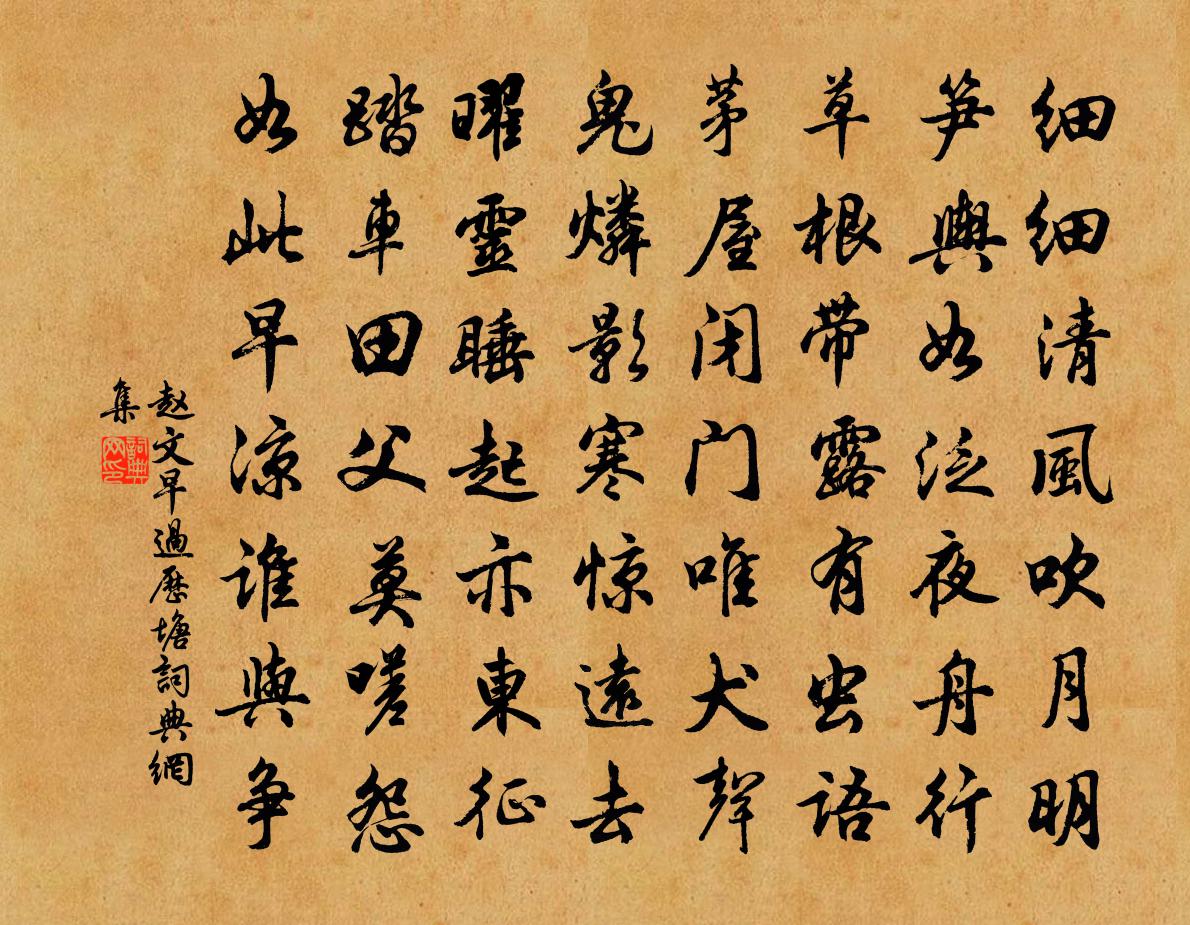 细细清風吹月明
笋輿如泛夜舟行
草根带露有虫语
茅屋闭门唯犬聲
鬼燐影寒惊遠去
曜靈睡起亦東征
踏車田父莫嗟怨
如此早凉谁與争
赵文早過歷塘詞典網
集